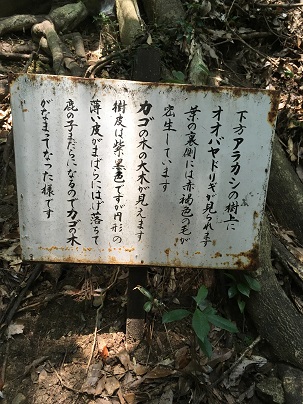 下方アラカシの樹上に
オオバヤドリギが見られます
葉の裏側には赤褐色の毛が
密生しています
カゴの木の大木が見えます
樹皮は紫黒色ですが円形の
薄い皮がまばらにはげ落ちて
鹿の子まだらになるのでカゴの木
がなまってなった様です